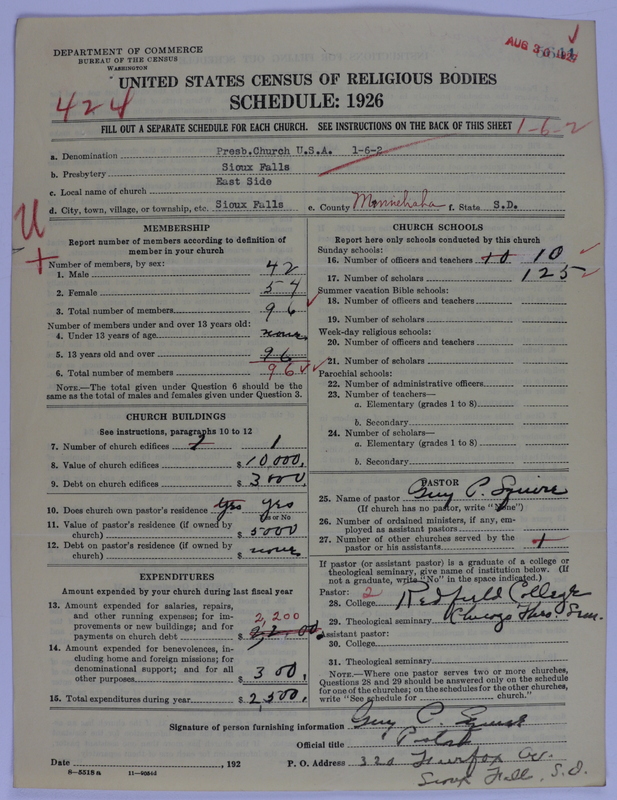 DEPARTMENT OF COMMERCE
BUREAU OF THE CENSUS
WASHINGTON
AUG 30 1927
UNITED STATES CENSUS OF RELIGIOUS BODIES
SCHEDULE: 1926
424
FILL OUT A SEPARATE SCHEDULE FOR EACH CHURCH. SEE INSTRUCTIONS ON THE BACK OF THIS SHEET
1-6-2
a. Denomination Presb.Church U.S.A. 1-6-2
b. Presbytery Sioux Falls
c. Local name of church East Side
d. City, town, village, or township, etc. Sioux Falls e. County Minnehaha f. State S.D.
U
+
MEMBERSHIP
Report number of members according to definition of
member in your church
Number of members, by sex:
1. Male 42
2. Female 54
3. Total number of members 96
Number of members under and over 13 years old:
4. Under 13 years of age none
5. 13 years old and over 96
6. Total number of members 96
NOTE.—The total given under Question 6 should be the
same as the total of males and females given under Question 3.
CHURCH BUILDINGS
See instructions, paragraphs 10 to 12
7. Number of church edifices 1
8. Value of church edifices $ 10,000,
9. Debt on church edifices $ 3000,
10. Does church own pastor's residence yes yes
Yes or No
11. Value of pastor's residence (if owned by
church) $ 5000
12. Debt on pastor's residence (if owned by
church) $ none
EXPENDITURES
Amount expended by your church during last fiscal year
13. Amount expended for salaries, repairs,
and other running expenses; for im-
provements or new buildings; and for
payments on church debt $ 2,200
14. Amount expended for benevolences, in-
cluding home and foreign missions; for
denominational support; and for all
other purposes $ 300,
15. Total expenditures during year $ 2,500,
CHURCH SCHOOLS
Report here only schools conducted by this church
Sunday schools:
16. Number of officers and teachers 10 10
17. Number of scholars 125
Summer vacation Bible schools:
18. Number of officers and teachers
19. Number of scholars
Week-day religious schools:
20. Number of officers and teachers
21. Number of scholars
Parochial schools:
22. Number of administrative officers
23. Number of teachers—
a. Elementary (grades 1 to 8)
b. Secondary
24. Number of scholars—
a. Elementary (grades 1 to 8)
b. Secondary
PASTOR
25. Name of pastor Guy P. Squire
(If church has no pastor, write "None")
26. Number of ordained ministers, if any, em-
ployed as assistant pastors
27. Number of other churches served by the
pastor or his assistants 1
If pastor (or assistant pastor) is a graduate of a college or
theological seminary, give name of institution below. (If
not a graduate, write "No" in the space indicated.)
Pastor: 2
28. College Redfield College
29. Theological seminary Chicago Theo. Sem.
Assistant pastor:
30. College
31. Theological seminary
NOTE.—Where one pastor serves two or more churches,
Questions 28 and 29 should be answered only on the schedule
for one of the churches; on the schedules for the other churches,
write "See schedule for church."
Signature of person furnishing information Guy P. Squire
Official title Pastor
Date , 192 P. O. Address 320 Fairfax Av.
Sioux Falls, S.D.
8—5518 a